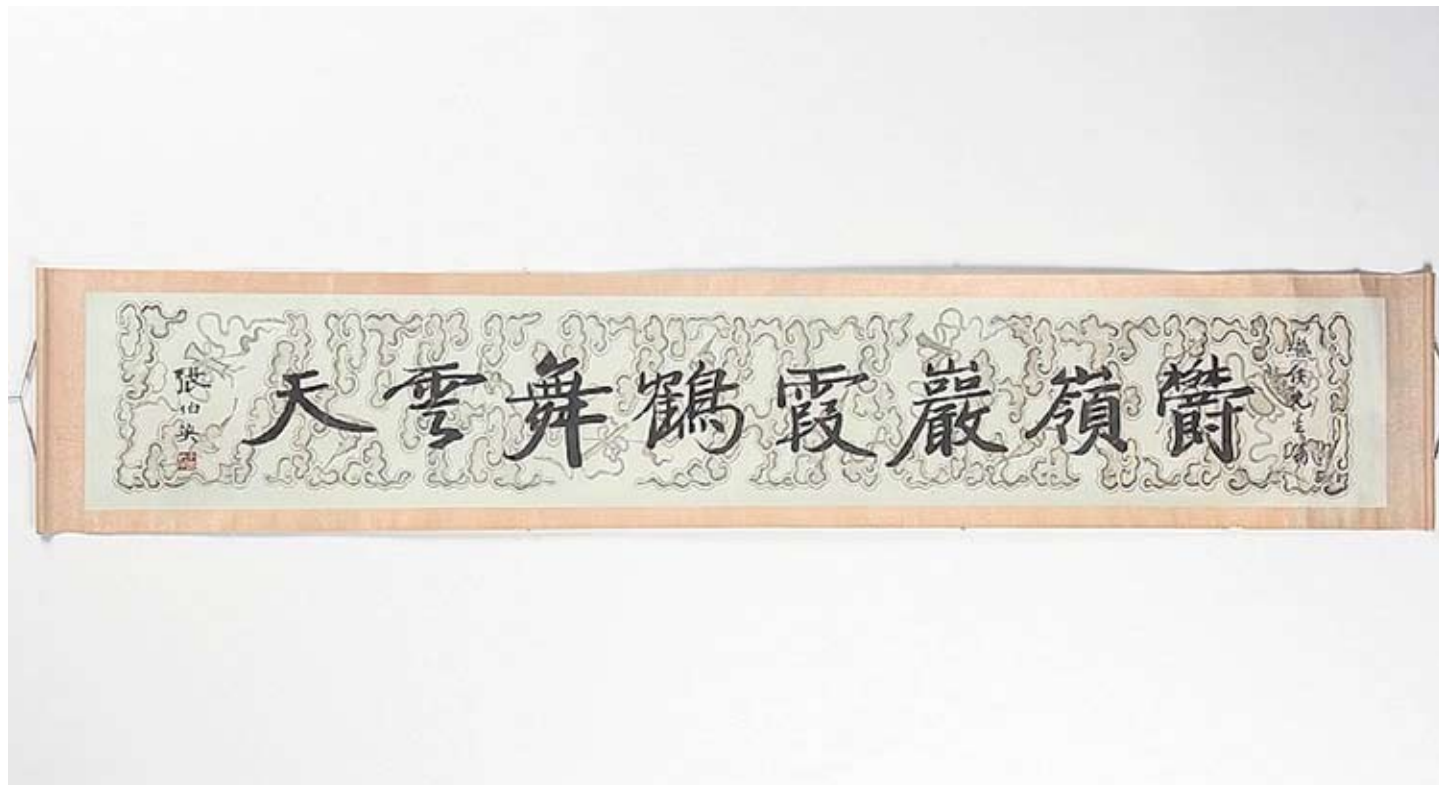 欝嶺巖霞鶴舞雲天
張伯英